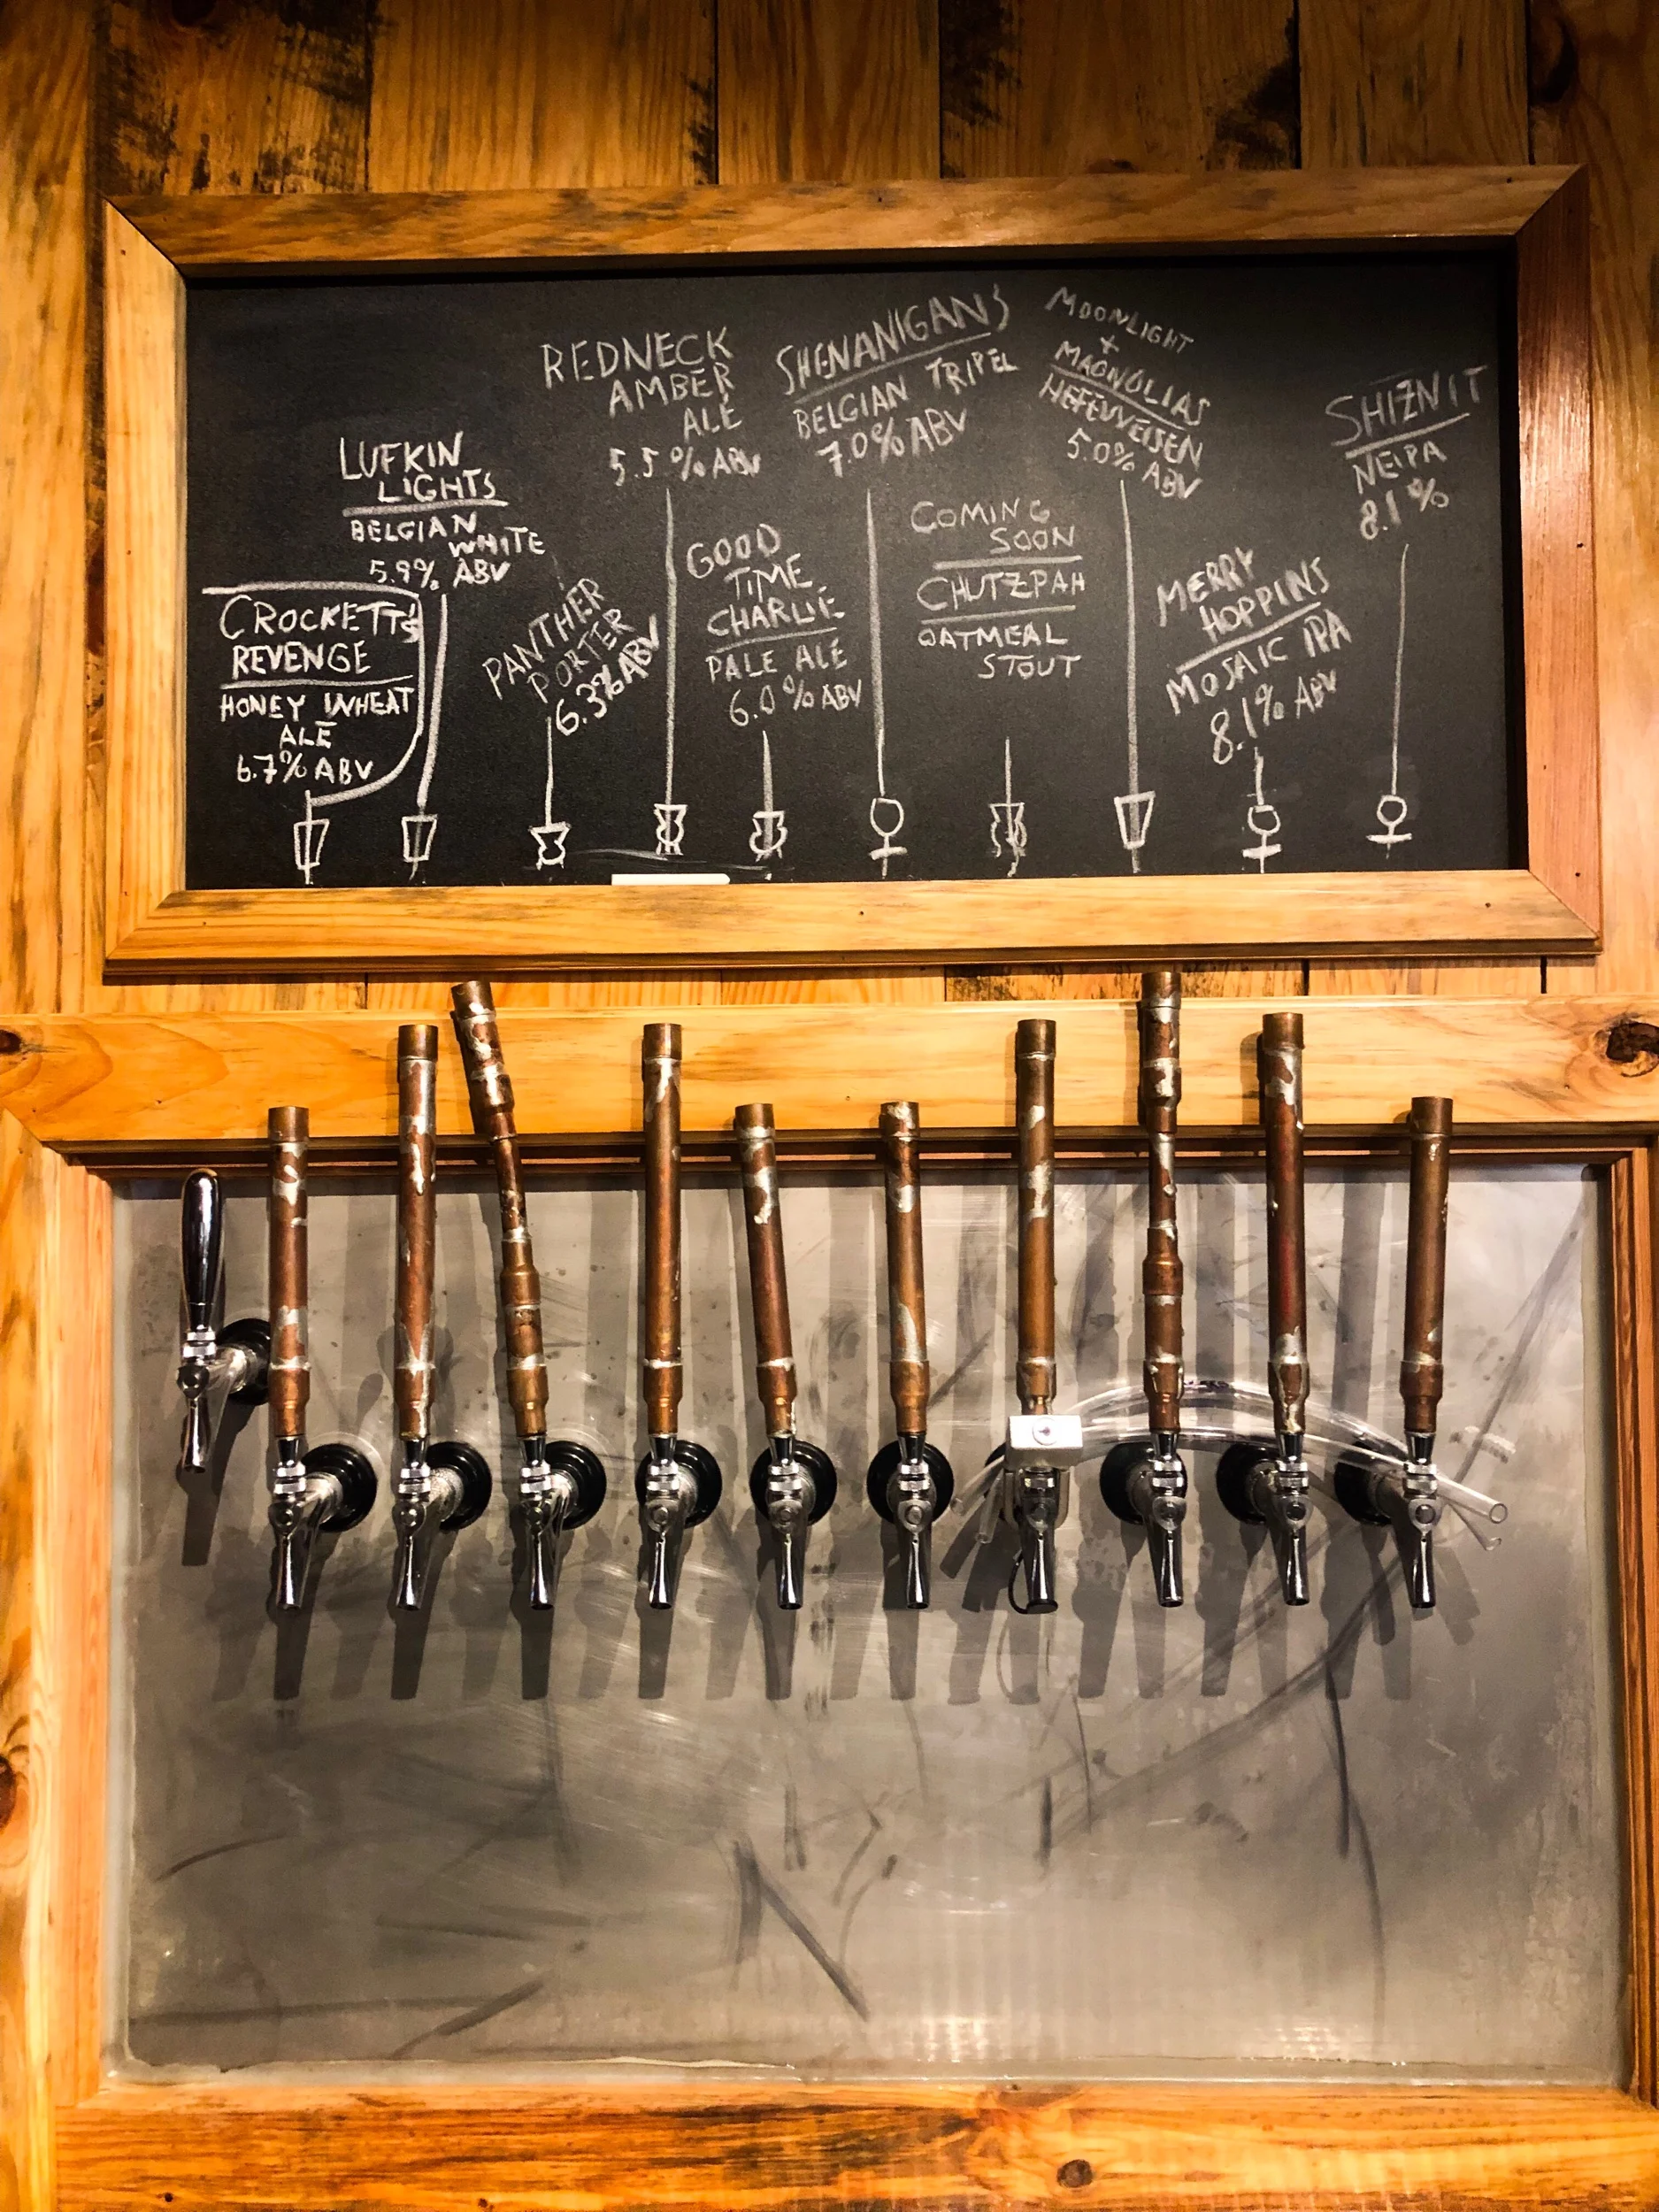 CROCKETT'S
REVENGE
HONEY WHEAT
ALE
6.7% ABV
LUFKIN
LIGHTS
BELGIAN
WHITE
5.9% ABV
PANTHER
PORTER
6.3% ABV
REDNECK
AMBER
ALE
5.5% ABV
GOOD
TIME
CHARLIE
PALE ALE
6.0% ABV
SHENANIGANS
BELGIAN TRIPEL
7.0% ABV
COMING
SOON
CHUTZPAH
OATMEAL
STOUT
MOONLIGHT
+
MAGNOLIAS
HEFEWEISEN
5.0% ABV
MERRY
HOPPINS
MOSAIC IPA
8.1% ABV
SHIZNIT
NEIPA
8.1%